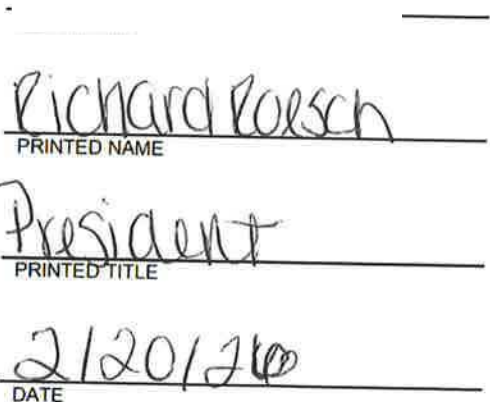 Richard Roesch
PRINTED NAME
President
PRINTED TITLE
2/20/26
DATE